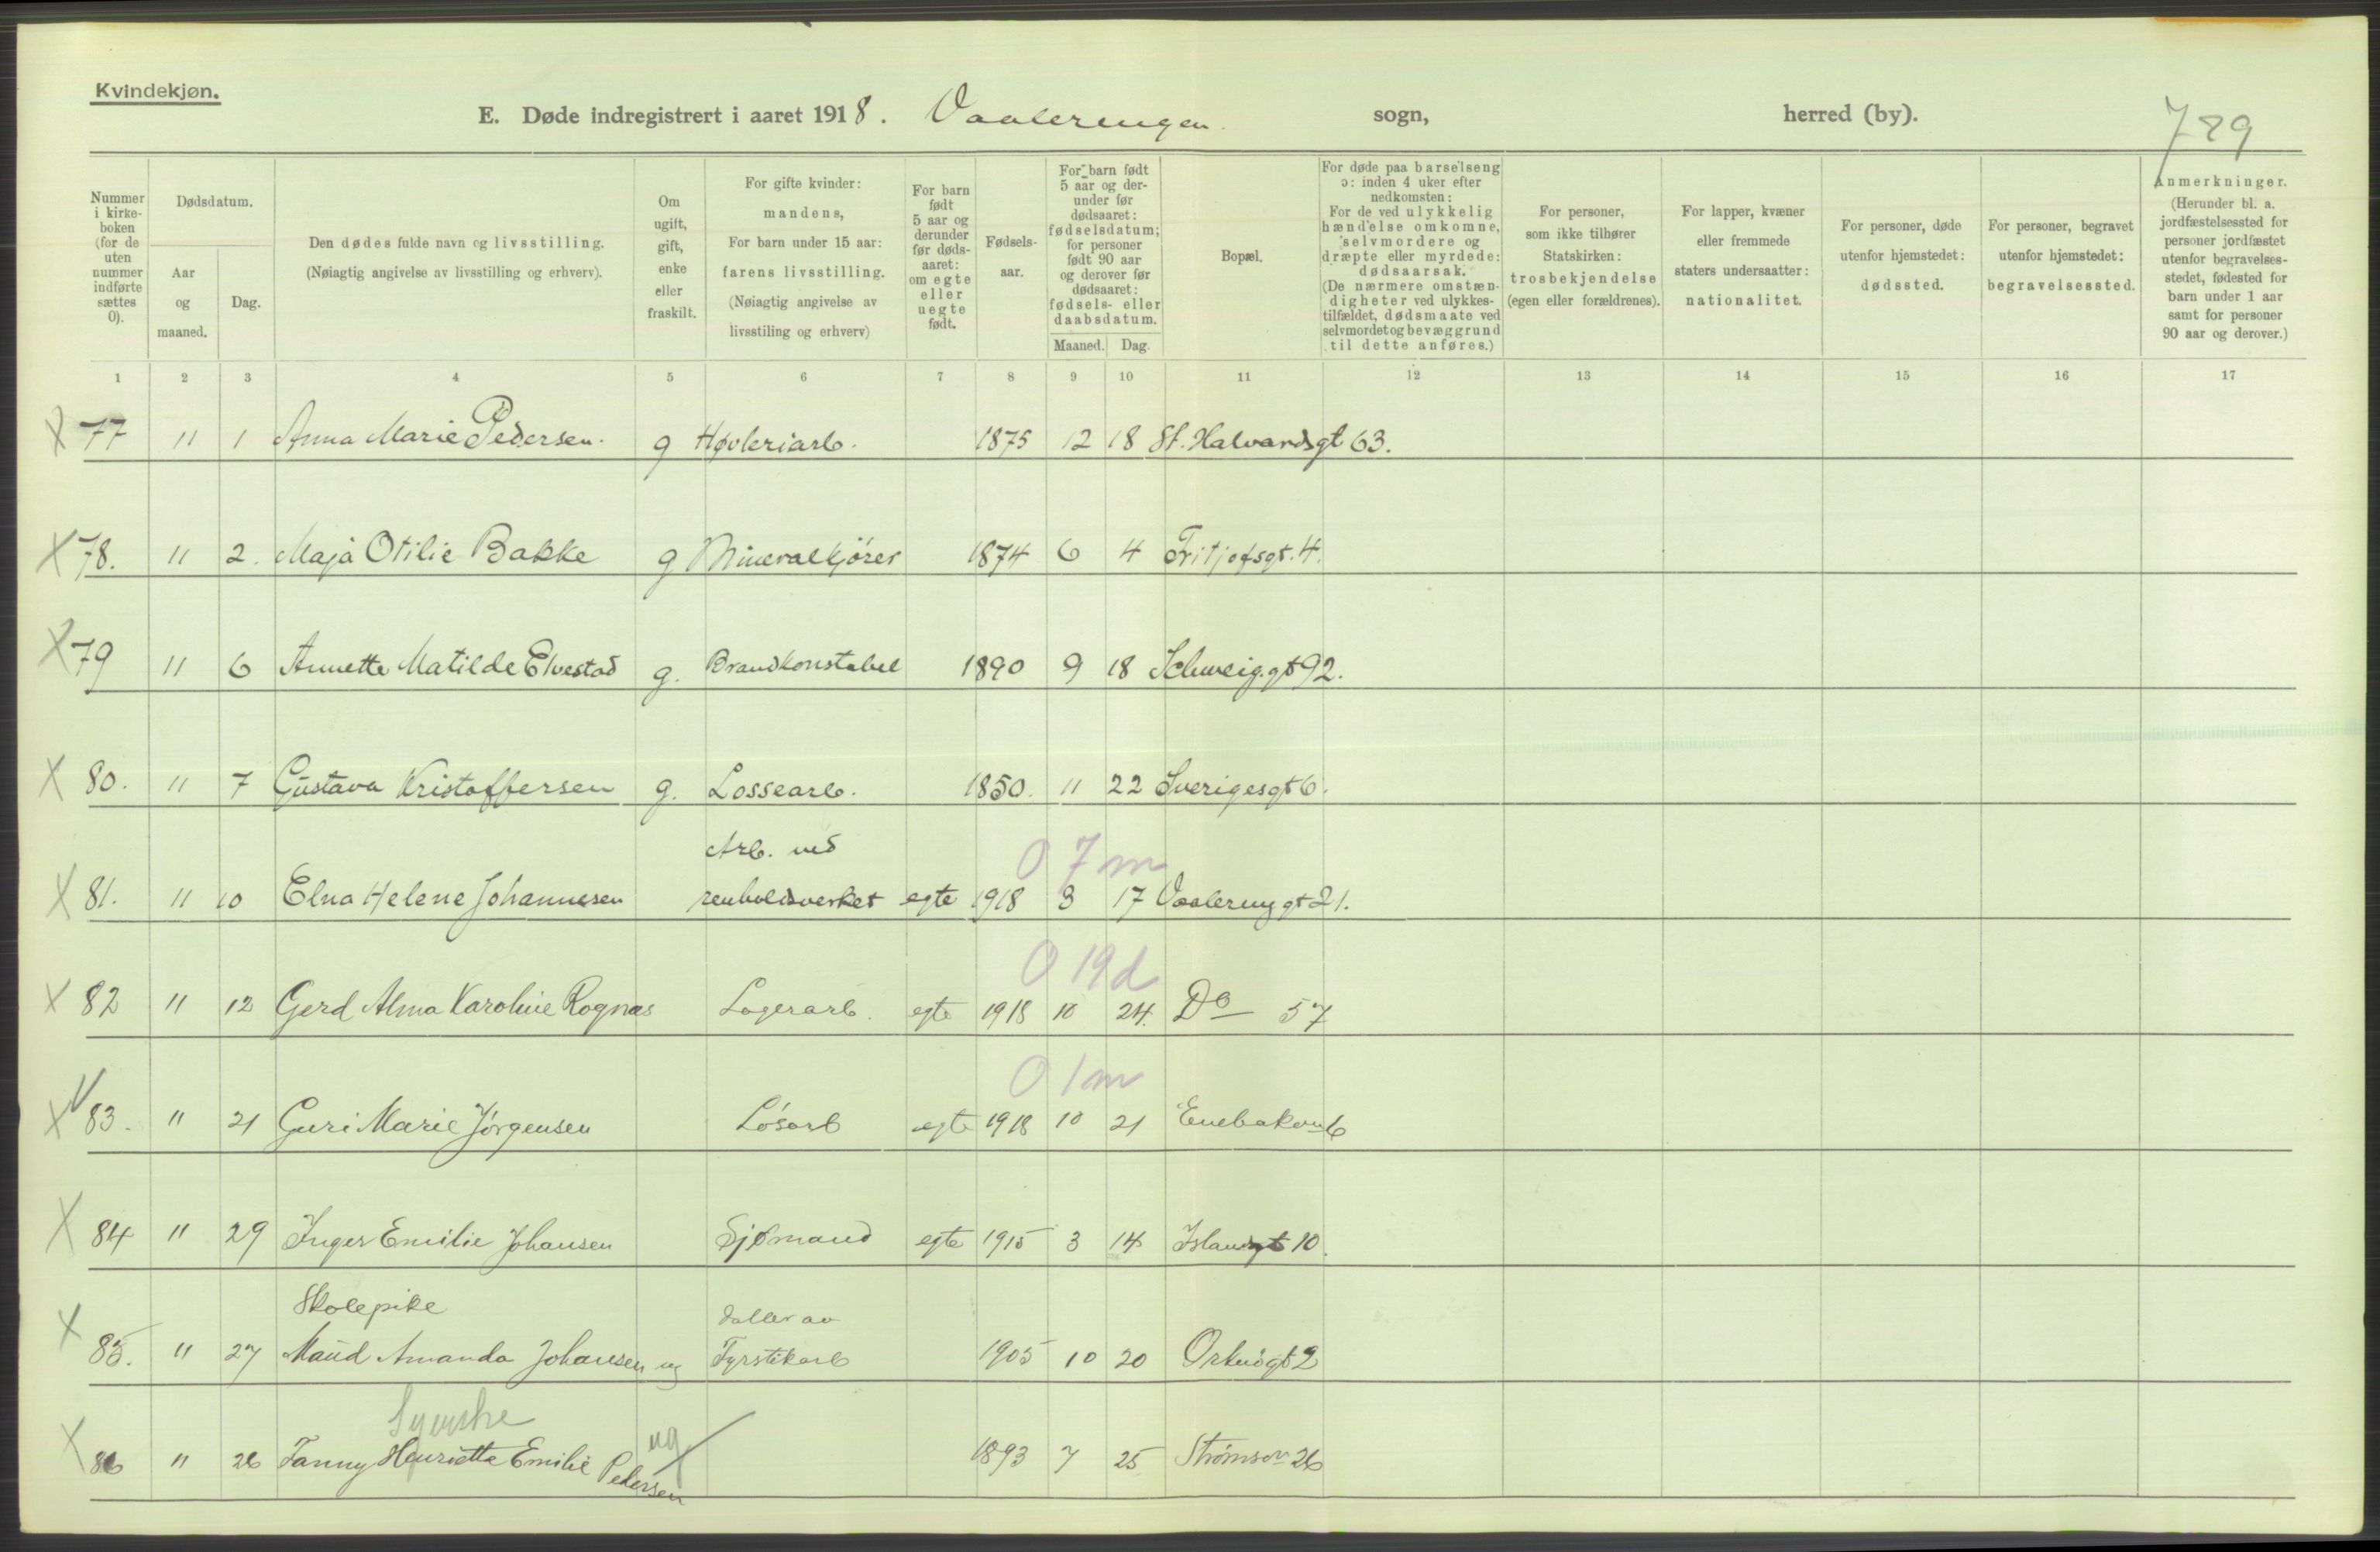 Kvindekjøn.
E. Døde indregistrert i aaret 1918. Vaalerengen. sogn, herred (by). 729
Nummer i kirke-boken (for de uten nummer indførte sættes 0).
Dødsdatum.
Aar og maaned.
Dag.
Den dødes fulde navn og livsstilling.
(Nøiagtig angivelse av livsstilling og erhverv).
Om ugift, gift, enke eller fraskilt.
For gifte kvinder: mandens,
For barn under 15 aar: farens livsstilling.
(Nøiagtig angivelse av livsstiling og erhverv)
For barn født 5 aar og derunder før døds-aaret: om egte eller uegte født.
Fødsels-aar.
For barn født 5 aar og der-under før dødsaaret: fødselsdatum; for personer født 90 aar og derover før dødsaaret: fødsels- eller daabsdatum.
Maaned. Dag.
Bopæl.
For døde paa barselseng ɔ: inden 4 uker efter nedkomsten:
For de ved ulykkelig hændelse omkomne, selvmordere og dræpte eller myrdede: dødsaarsak.
(De nærmere omstæn-digheter ved ulykkes-tilfældet, dødsmaate ved selvmord et og bevæggrund til dette anføres.)
For personer, som ikke tilhører Statskirken: trosbekjendelse (egen eller forældrenes).
For lapper, kvæner eller fremmede staters undersaatter: nationalitet.
For personer, døde utenfor hjemstedet: dødssted.
For personer, begravet utenfor hjemstedet: begravelsessted.
Anmerkninger.
(Herunder bl. a. jordfæstelsessted for personer jordfæstet utenfor begravelses-stedet, fødested for barn under 1 aar samt for personer 90 aar og derover.)
1 2 3 4 5 6 7 8 9 10 11 12 13 14 15 16 17
X 77 11 1 Anna Marie Pedersen. g Høvleriarb. 1875 12 18 St. Halvardsgt 63.
X 78. 11 2. Maja Otilie Bakke g Mineralkjører 1874 6 4 Fritjofsgt. 4.
X 79 11 6 Annette Matilde Elvestad g. Brandkonstabel 1890 9 18 Schweig.gt 92.
X 80. 11 7 Gustava Kristoffersen g. Lossearb. 1850. 11 22 Sverigesgt 6.
Arb. ved 0 7 m
X 81. 11 10 Elna Helene Johannesen renholdsverket egte 1918 3 17 Vaalerenggt 21.
0 19 d
X 82 11 12 Gerd Alma Karoline Rognæs Lagerarb. egte 1918 10 24. Do 57
0 1 m
X 83. 11 21 Guri Marie Jørgensen Løsarb egte 1918 10 21 Enebakvn 6
X 84 11 29 Inger Emilie Johansen Sjømand egte 1915 3 14 Islandsgt 10.
Skolepike datter av
X 85. 11 27 Maud Amanda Johansen ug Fyrstikarb 1905 10 20 Orknøgt 2
Syerske ug
X 86 11 26 Fanny Henriette Emilie Pedersen 1893 7 25 Strømsvn 26